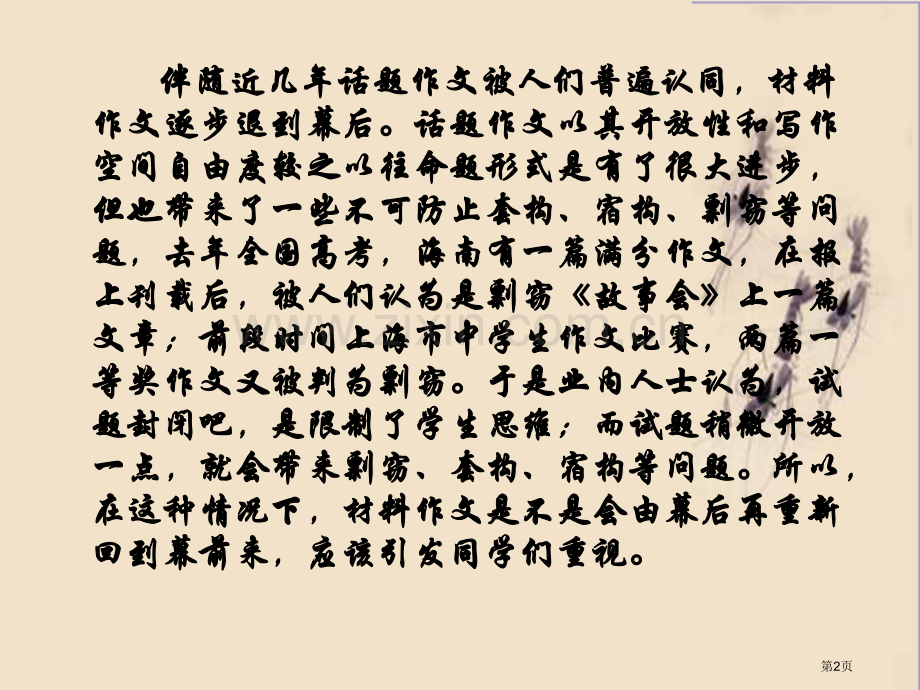 伴随近几年话题作文被人们普遍认同，材料
作文逐步退到幕后。话题作文以其开放性和写作
空间自由度较之以往命题形式是有了很大进步，
但也带来了一些不可防止套构、宿构、剽窃等问
题，去年全国高考，海南有一篇满分作文，在报
上刊载后，被人们认为是剽窃《故事会》上一篇
文章；前段时间上海市中学生作文比赛，两篇一
等奖作文又被判为剽窃。于是业内人士认为，试
题封闭吧，是限制了学生思维；而试题稍微开放
一点，就会带来剽窃、套构、宿构等问题。所以，
在这种情况下，材料作文是不是会由幕后再重新
回到幕前来，应该引发同学们重视。
www.zixin.com.cn
第2页